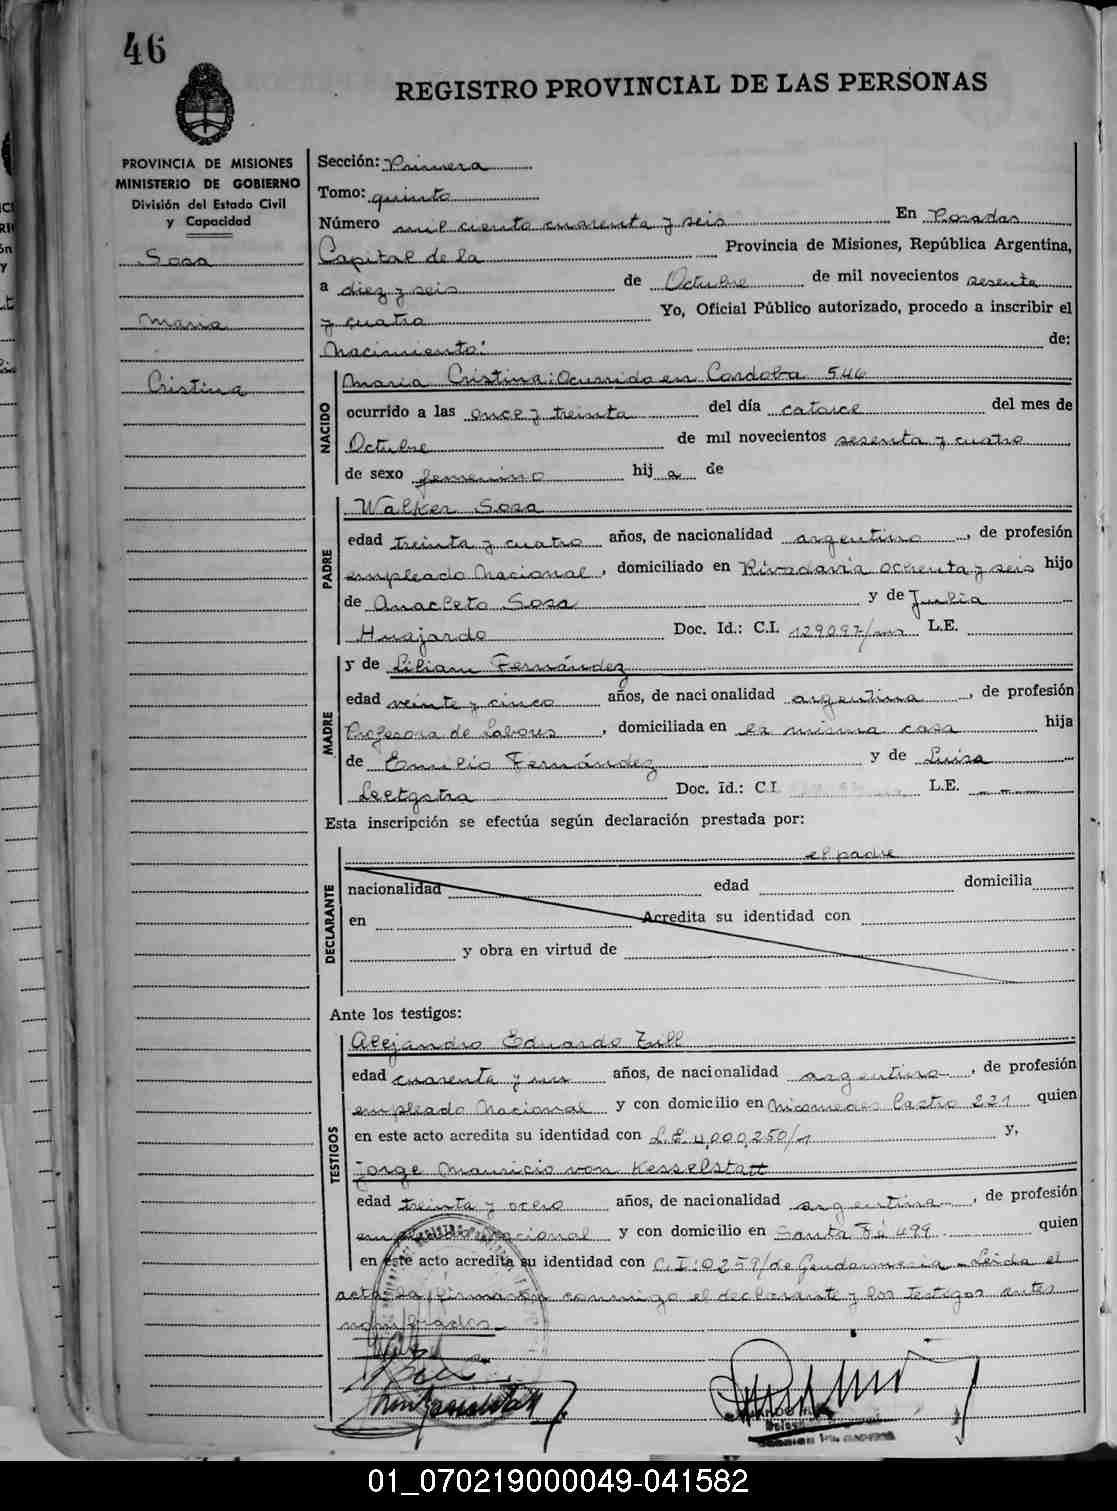 46
REGISTRO PROVINCIAL DE LAS PERSONAS
PROVINCIA DE MISIONES
MINISTERIO DE GOBIERNO
División del Estado Civil
y Capacidad
Sosa
Maria
Cristina
Sección: Primera
Tomo: quinto
Número mil ciento cuarenta y seis En Posadas
Capital de la Provincia de Misiones, República Argentina,
a diez y seis de Octubre de mil novecientos sesenta
y cuatro Yo, Oficial Público autorizado, procedo a inscribir el
Nacimiento: de:
NACIDO
Maria Cristina: Ocurrido en Cordoba 546
ocurrido a las once y treinta del día catorce del mes de
Octubre de mil novecientos sesenta y cuatro
de sexo femenino hij a de
PADRE
Walker Sosa
edad treinta y cuatro años, de nacionalidad argentino, de profesión
empleado Nacional, domiciliado en Rivadavia ochenta y seis hijo
de Anacleto Sosa y de Julia
Huajardo Doc. Id.: C.I. 129097/ L.E.
MADRE
y de Liliam Fernández
edad veinte y cinco años, de nacionalidad argentina, de profesión
Profesora de Labores, domiciliada en la misma casa hija
de Emilio Fernández y de Luisa
Doc. Id.: C.I. L.E.
Esta inscripción se efectúa según declaración prestada por:
DECLARANTE
el padre
nacionalidad edad domicilia
en Acredita su identidad con
y obra en virtud de
Ante los testigos:
TESTIGOS
Alejandro Eduardo Zill
edad cuarenta y un años, de nacionalidad argentino, de profesión
empleado Nacional y con domicilio en Nicomedes Castro 221 quien
en este acto acredita su identidad con L.E. 4,000,250/ y,
Jorge Mauricio von Kesselstatt
edad treinta y ocho años, de nacionalidad argentina, de profesión
empleado Nacional y con domicilio en Santa Fé 499 quien
en este acto acredita su identidad con C.I: 0259/ de Gendarmeria - Leida el
acta la firmaron conmigo el declarante y los testigos antes
nombrados -
01_070219000049-041582